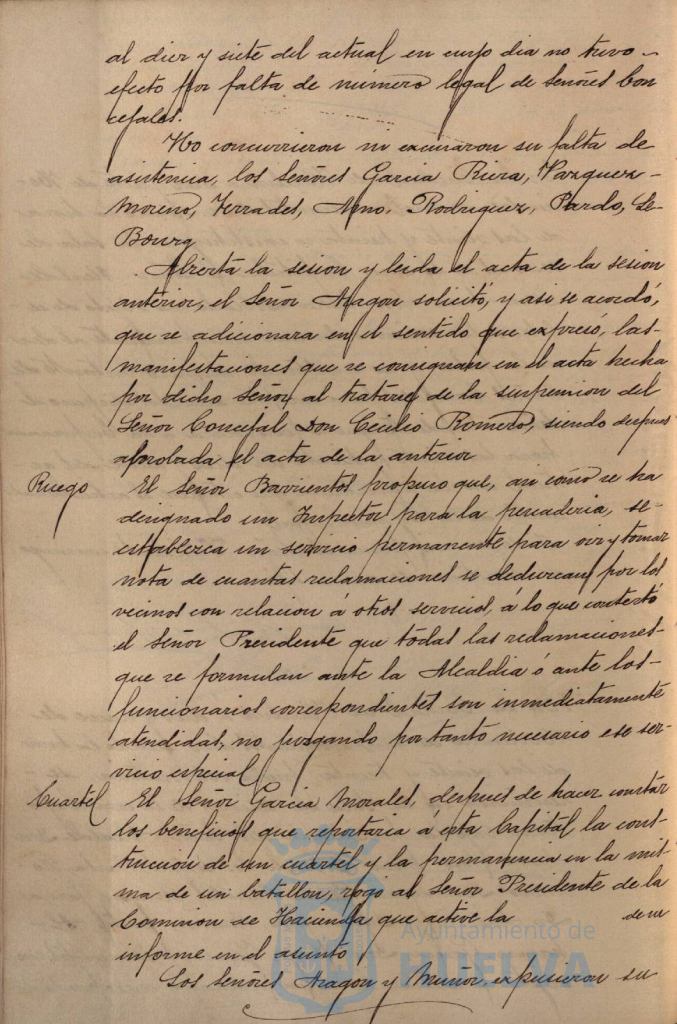 al diez y siete del actual en cuyo dia no tuvo
efecto por falta de número legal de Señores Con
cejales.
No concurrieron ni excusaron su falta de
asistencia, los Señores Garcia Riera, Vazquez-
Moreno, Terrades, Rodriguez, Pardo, Le-
Bourg
Abierta la sesion y leida el acta de la sesion
anterior, el Señor Aragon solicitó, y asi se acordó,
que se adicionara en el sentido que expresó, las-
manifestaciones que se consignan en el acta hecha
por dicho Señor al tratarse de la suspension del
Señor Concejal Don Cecilio Romero, siendo despues
aprobada el acta de la anterior
Ruego
El Señor Barrientos propuso que, asi como se ha
designado un Inspector para la pescaderia, se-
establezca un servicio permanente para oir y tomar
nota de cuantas reclamaciones se deduzcan por los
vecinos con relacion á otros servicios, á lo que contestó
el Señor Presidente que todas las reclamaciones-
que se formulan ante la Alcaldia ó ante los-
funcionarios correspondientes son inmediatamente
atendidas, no juzgando por tanto necesario ese ser-
vicio especial
Cuartel
El Señor Garcia Morales, despues de hacer constar
los beneficios que reportaria á esta Capital la cons-
truccion de un cuartel y la permanencia en la mis-
ma de un batallon, rogó al Señor Presidente de la
Comision de Hacienda que active la de su
informe en el asunto
Los Señores Aragon y Muñoz, expusieron su
Ayuntamiento de
HUELVA